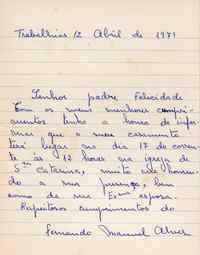 Trabalhias 12 Abril de 1971
Senhor padre Felicidade
Com os meus melhores cumpri-
mentos tenho a honra de infor-
mar que o meu casamento
terá lugar no dia 17 do corren-
te às 12 horas na igreja de
Stª Catarina, muito me honran-
do a sua presença, bem
como de sua Exma esposa.
Respeitosos cumprimentos do
Fernando Manuel Alves